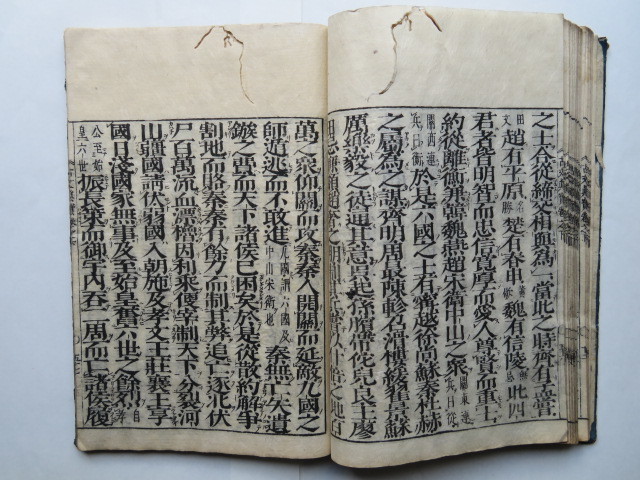 之士合從締交相與爲一當此之時齊有孟嘗
田文趙有平原勝楚有春申黃歇魏有信陵無忌此四
君者皆明智而忠信寬厚而愛人尊賢而重士
約從離衡兼韓魏燕趙宋衛中山之衆關東連兵曰從
關西連兵曰衡於是六國之士有甯越徐尚蘇秦杜赫
之屬爲之謀齊明周最陳軫召滑樓緩翟景蘇
厲樂毅之徒通其意吳起孫臏帶佗兒良王廖
田忌廉頗趙奢之朋制其兵嘗以什倍之地百
萬之衆仰關而攻秦秦人開關而延敵九國之
師遁逃而不敢進九國謂六國及中山宋衛也秦無亡矢遺
鏃之費而天下諸侯已困矣於是從散約解爭
割地而賂秦秦有餘力而制其弊追亡逐北伏
尸百萬流血漂櫓因利乘便宰制天下分裂河
山彊國請伏弱國入朝施及孝文王莊襄王享
國日淺國家無事及至始皇奮六世之餘烈自孝
公至始皇六世振長策而御宇內吞二周而亡諸侯履